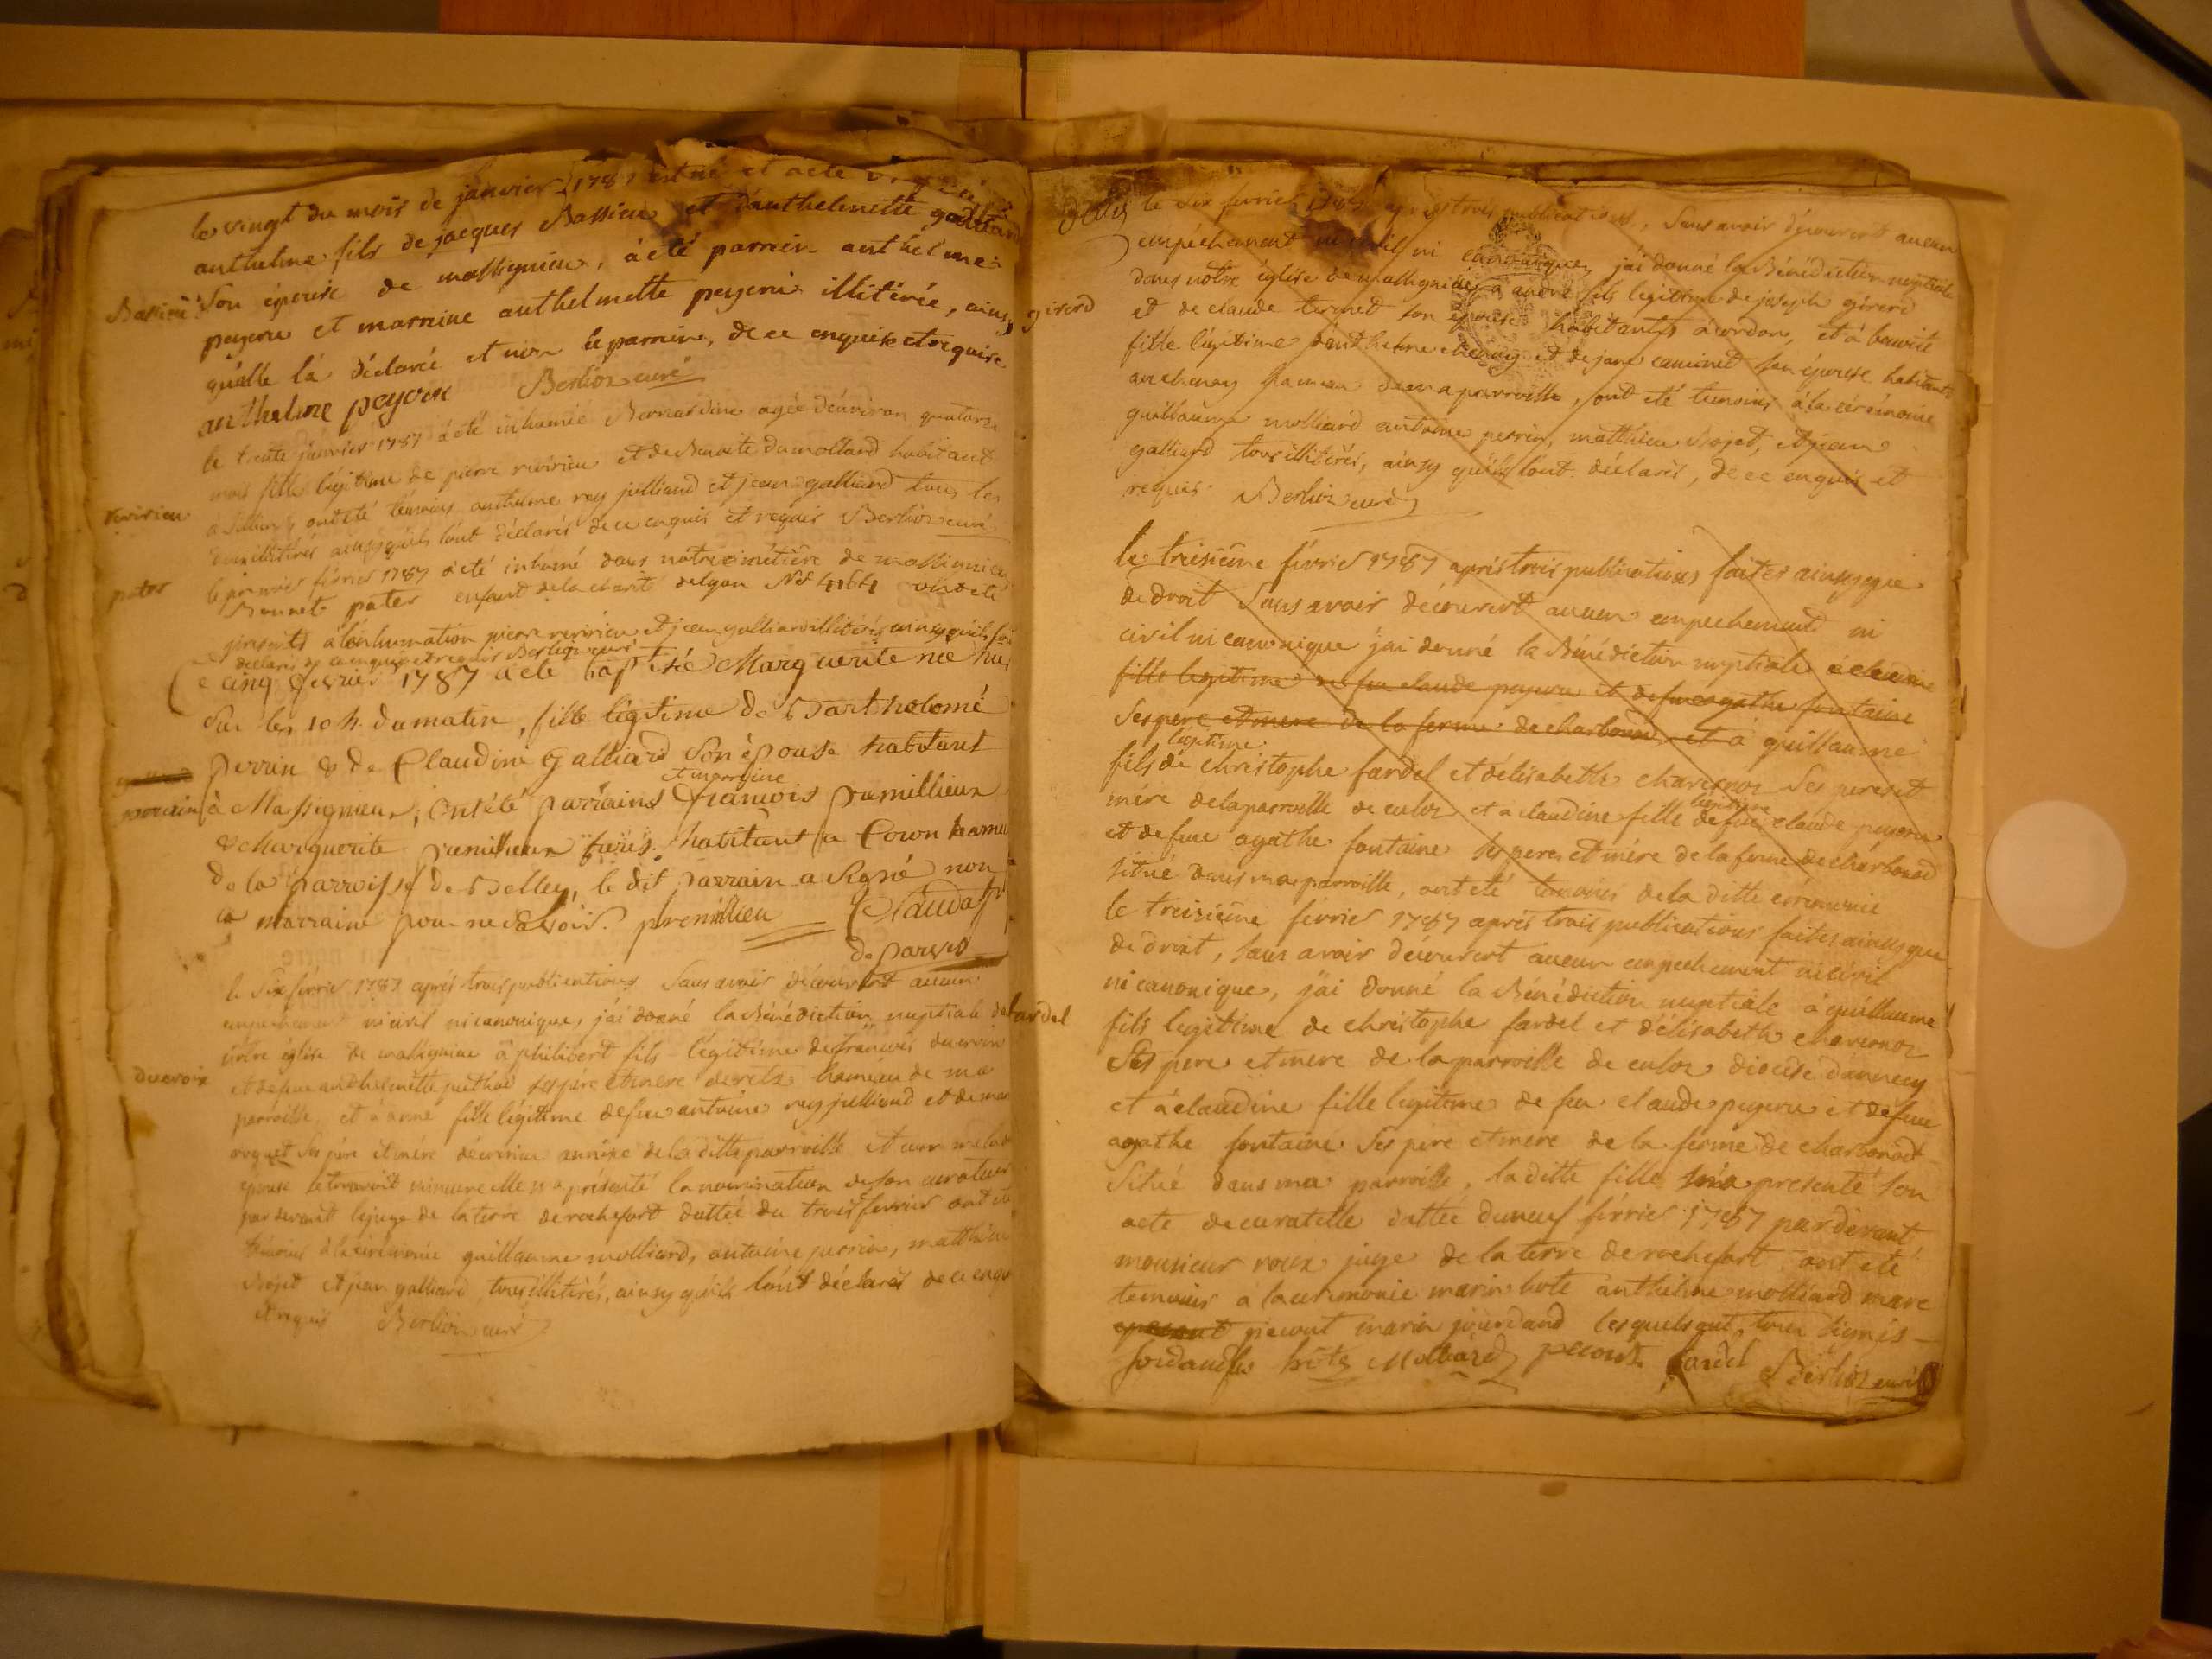 le vingt du mois de janvier 1787 est né et a été
anthelme fils de jacques Bassieu et d'anthelmette galliard
Bassieu Son épouse de massignieu, a été parrein anthelme
peyeru et marraine anthelmette peyeru illitérée, ainsy
qu'elle l'a déclaré et non le parrein, de ce enquise et requise
anthelme peyeru Berlioz curé
le trente janvier 1787 a été inhumée Bernardine agée d'environ quatorze
mois fille légitime de pierre revirieu et de Benoite du mollard habitant
revirieu
à ont été témoins anthelme rey julliand et jean galliard tous les
deux illitérés ainsy qu'ils l'ont déclarés de ce enquis et requis Berlioz curé
pater le premier février 1787 a été inhumé dans notre cimetière de massignieu
Bonnet pater enfant de la charité de lyon N° 4164 ont été
présents à l'inhumation pierre revirieu et jean galliard illitérés ainsy qu'ils l'ont
déclarés de ce enquis et requis Berlioz curé
Le cinq fevrier 1787 a été baptisé Marguerite née hier
Sur les 10 h. du matin, fille légitime de Bartholomé
perrin & de Claudine Galliard Son épouse habitant
et marraine
perrin à Massignieu; ont été parrains françois premillieux
& Marguerite premillieux habitant a Coron hameau
de la parroisse de Belley, le dit parrain a Signé non
la marraine pour ne Savoir. premillieu Claudat
de parves
le Six février 1787 après trois publications Sans avoir découvert aucun
empechement ni civil ni canonique, j'ai donné la Bénédiction nuptiale dans
notre église de massignieu à philibert fils légitime de françois ducroix
ducroix et de feue anthelmette Ses père et mère de hameau de ma
parroisse, et à anne fille légitime de feu antoine rey julliand et de
Ses père et mère annexe de la ditte parroisse et
épouse Se trouvant mineure elle m'a présenté la nomination de Son curateur
par devant le juge de la terre de rochefort dattée du trois fevrier ont été
témoins à la cérémonie guillaume molliard, antoine perrin, matthieu
et jean galliard tous illitérés, ainsy qu'ils l'ont déclarés de ce enquis
et requis Berlioz curé
le Six fevrier 1787 après trois publications, Sans avoir découvert aucun
empéchement ni civil ni canonique, j'ai donné la Bénédiction nuptiale
dans notre église de massignieu à andré fils legitime de joseph girerd
girerd et de claude ternet Son épouse habitants à cordon, et à benoite
fille légitime d'anthelme chenay et de jane caminet Son épouse habitants
au chenay hameau de ma parroisse, ont été temoins à la cérémonie
guillaume molliard antoine perrin, matthieu et jean
galliard tous illitérés, ainsy qu'ils l'ont déclarés, de ce enquis et
requis Berlioz curé
le treisieme février 1787 après trois publications faites ainsy que
de droit Sans avoir découvert aucun empechement ni
civil ni canonique j'ai donné la Bénédiction nuptiale à claudine
fille legitime de feu claude peyeru et de feue agathe fontaine
Ses pere et mere de la ferme de charbonod et à guillaume
légitime
fils de christophe fardel et d'élisabeth charcornoz Ses pere et
légitime
mére de la parroisse de culoz et a claudine fille de feu claude peyeru
et de feue agathe fontaine Ses pere et mére de la ferme de charbonod
Situé dans ma parroisse, ont été temoins de la ditte cérémonie
le treisieme février 1787 après trois publications faites ainsy que
de droit, Sans avoir découvert aucun empechement ni civil
fardel ni canonique, j'ai donné la Bénédiction nuptiale à guillaume
fils legitime de christophe fardel et d'élisabeth charcornoz
Ses pere et mere de la parroisse de culoz diocése d'annecy
et à claudine fille legitime de feu claude peyeru et de feue
agathe fontaine Ses pere et mere de la ferme de charbonod
Situé dans ma parroisse, la ditte fille m'a presenté Son
acte de curatelle dattée du neuf février 1787 par devant
monsieur roux juge de la terre de rochefort ont été
temoins a la ceremonie marin hote anthelme molliard marc
picout marin jourdand lesquels ont tous Signés
jordand hote Molliard picout fardel Berlioz curé